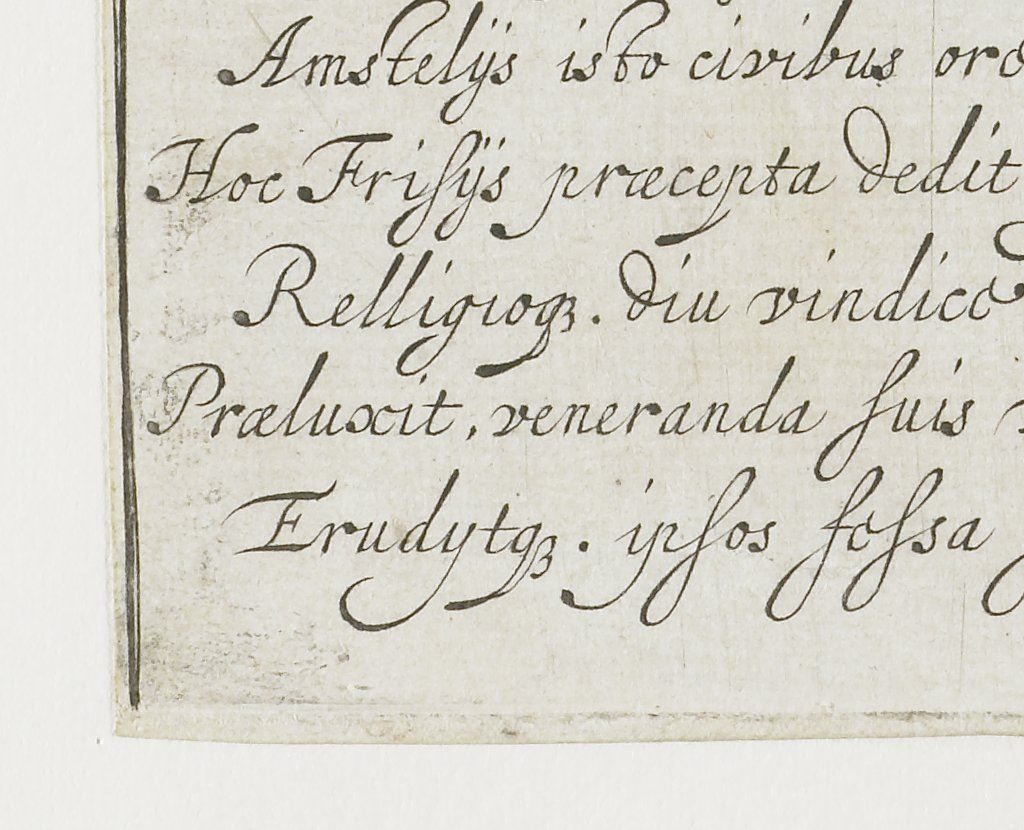 Amstelijs isto civibus
Hoc Frisijs præcepta dedit
Relligioq3. diu
Præluxit, veneranda suis
Erudytq3. ipsos fessa